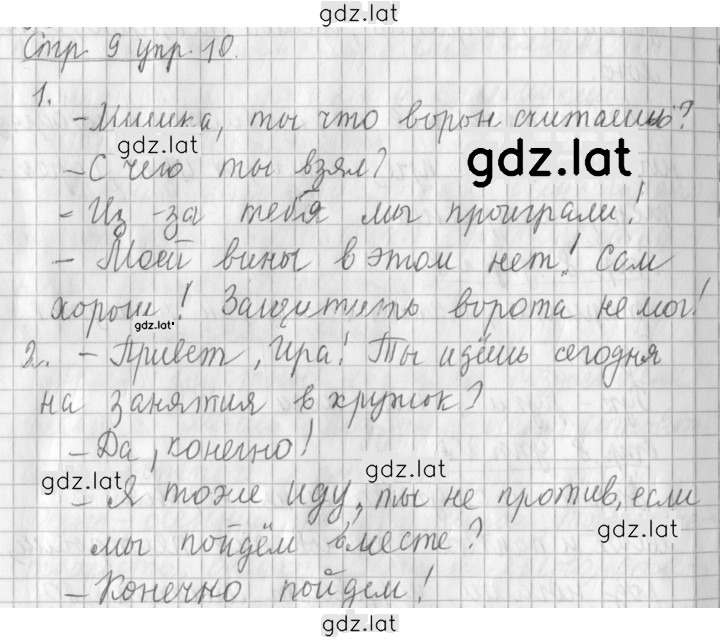 gdz.lat
Стр. 9 упр. 10.
1.
- Мишка, ты что ворон считаешь?
gdz.lat
gdz.lat
- С чего ты взял?
- Из-за тебя мы проиграли!
- Моей вины в этом нет! Сам
хорош! Защитить ворота не мог!
gdz.lat
2. - Привет, Ира! Ты идёшь сегодня
на занятия в кружок?
- Да, конечно!
gdz.lat
gdz.lat
- Я тоже иду, ты не против, если
gdz.lat
мы пойдём вместе?
- Конечно пойдем!
gdz.lat